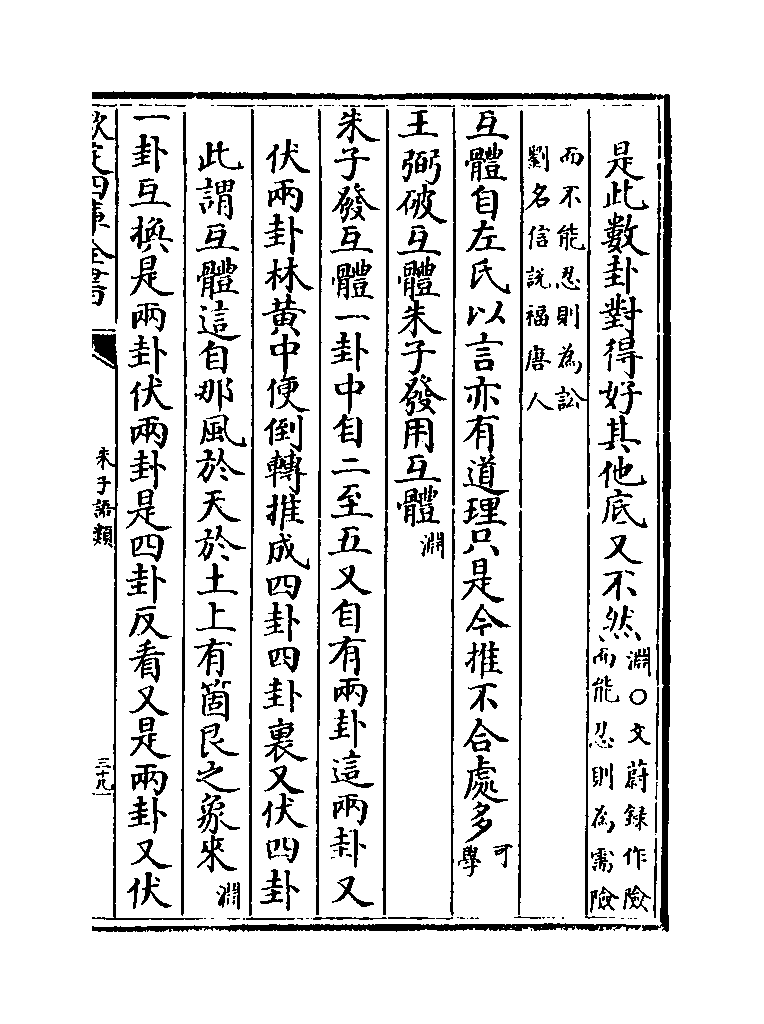 是此數卦對得好其他底又不然淵○文蔚錄作險而能忍則為需險
而不能忍則為訟劉名信說福唐人
互體自左氏以言亦有道理只是今推不合處多可學
王弼破互體朱子發用互體淵
朱子發互體一卦中自二至五又自有兩卦這兩卦又
伏兩卦林黃中便倒轉推成四卦四卦裏又伏四卦
此謂互體這自那風於天於土上有箇艮之象來淵
一卦互換是兩卦伏兩卦是四卦反看又是兩卦又伏
欽定四庫全書
朱子語類